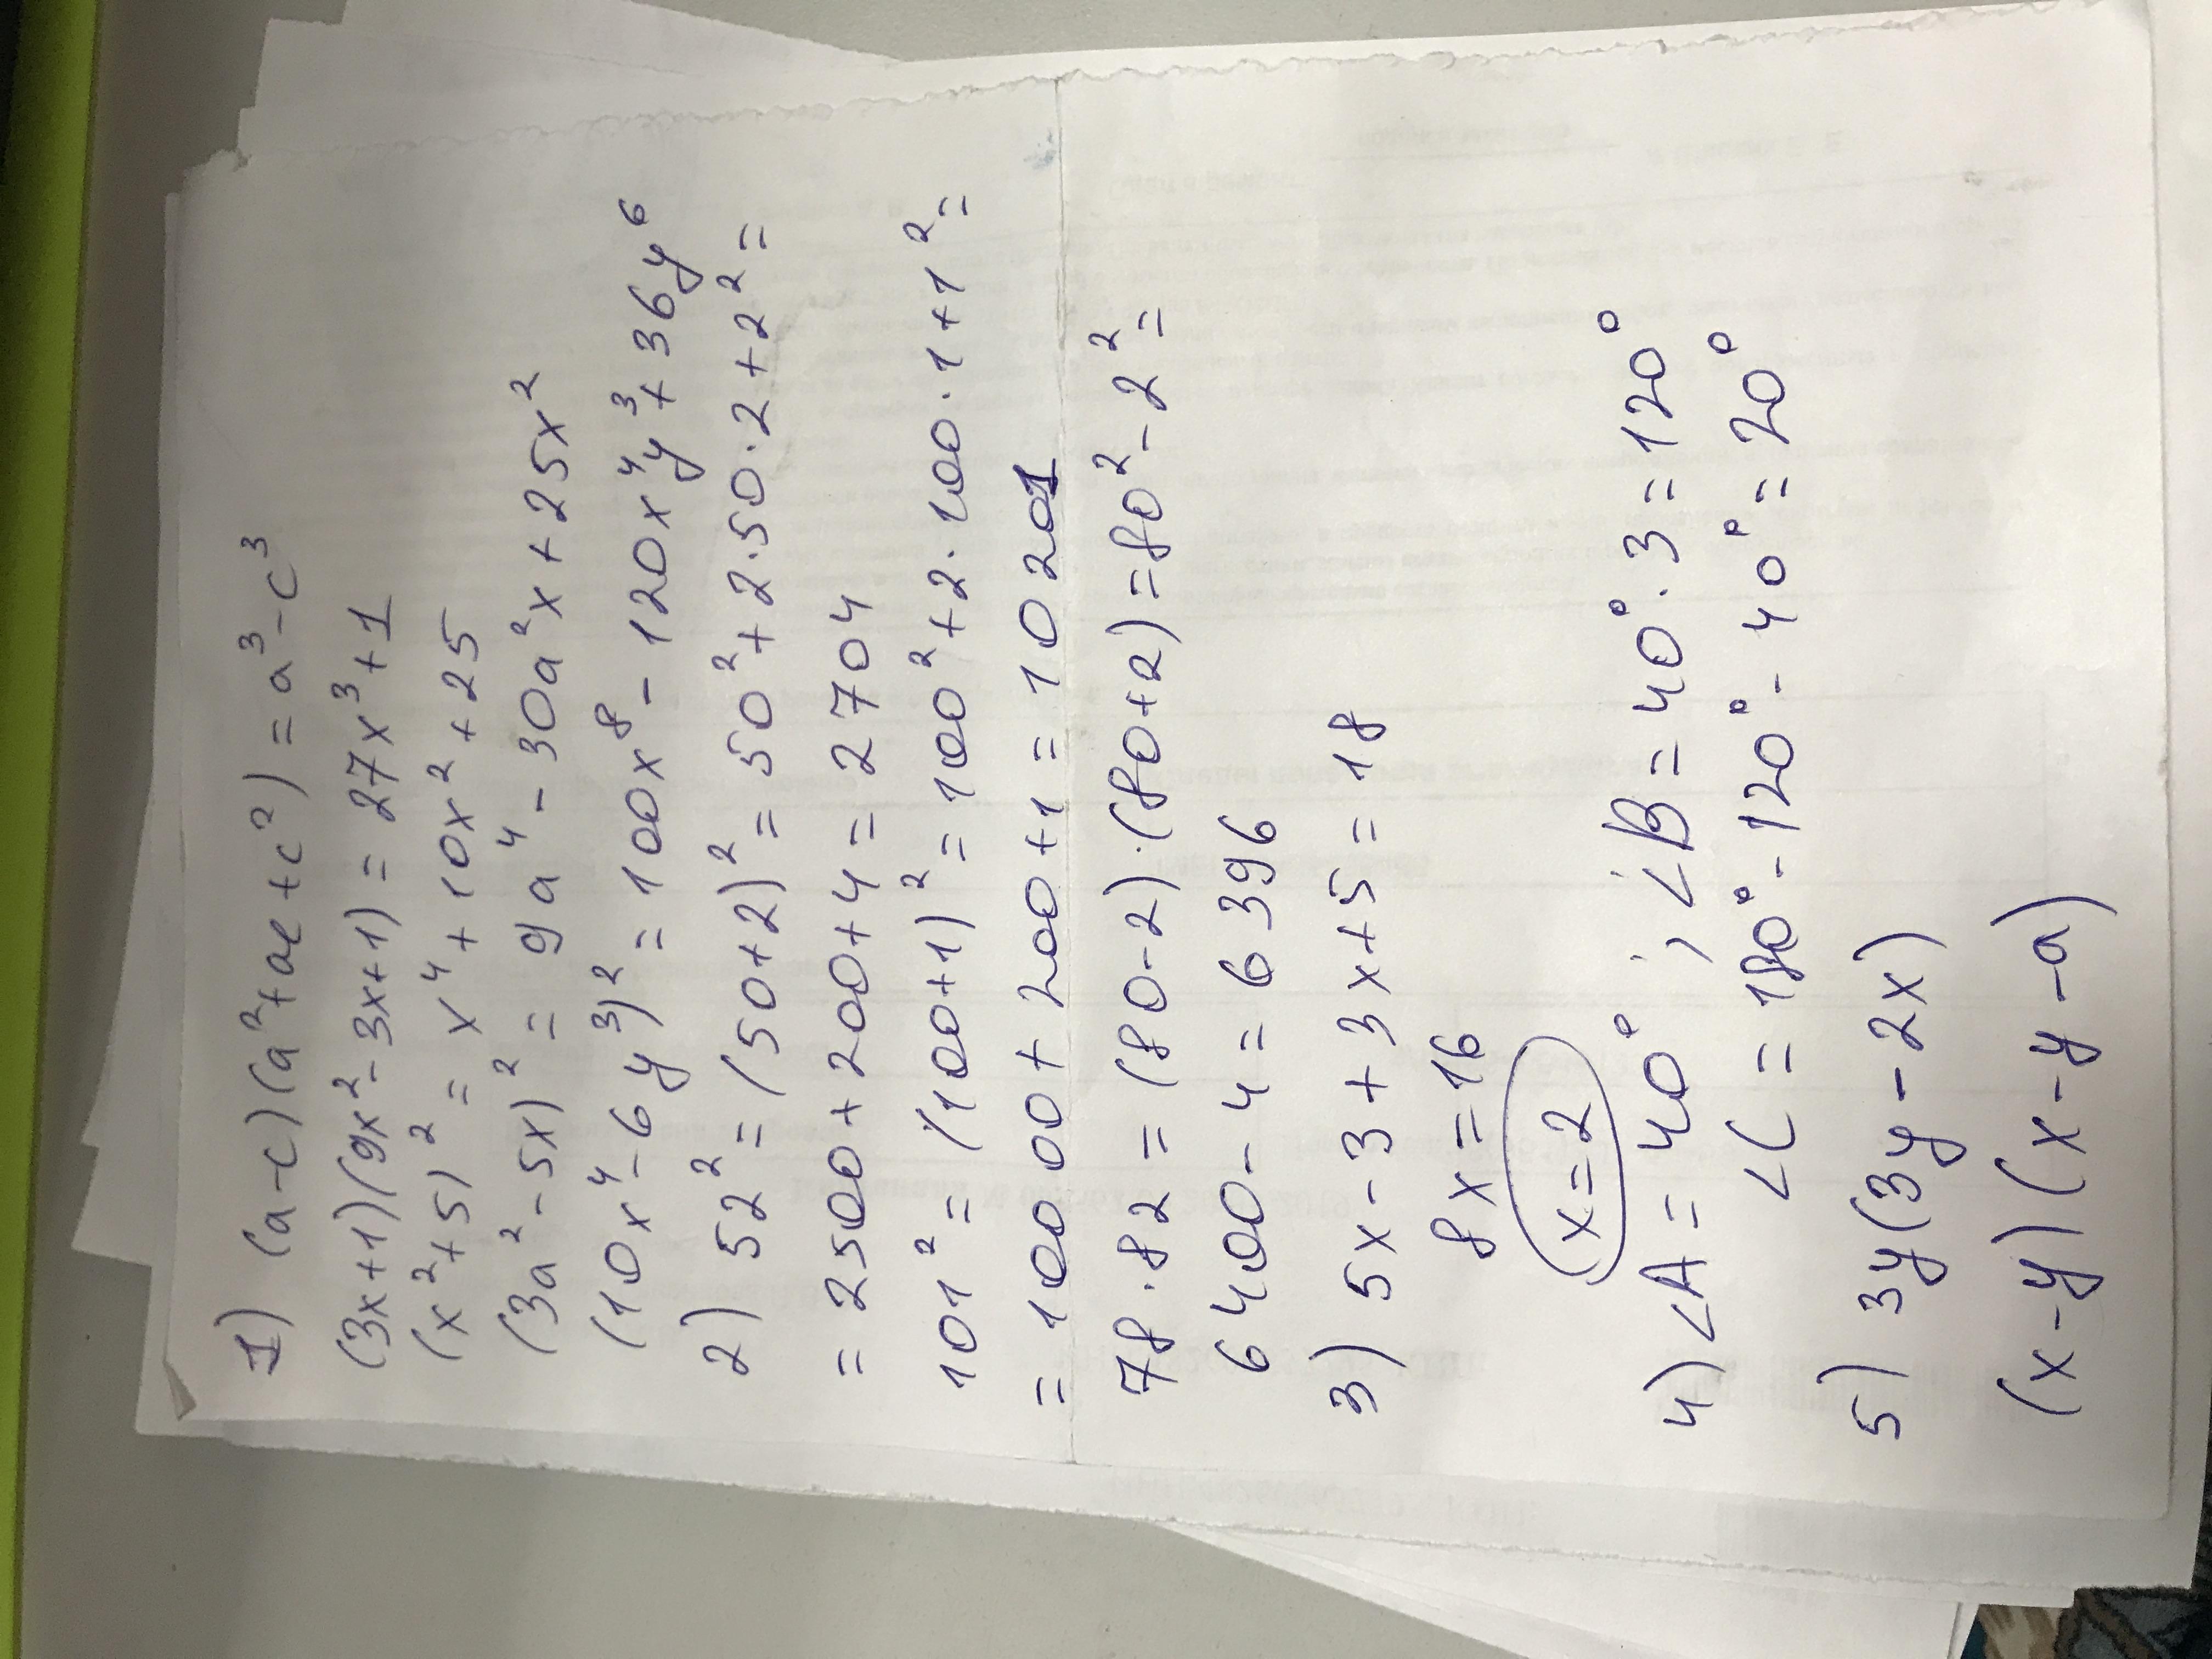 1) (a-c)(a²+ac+c²) = a³-c³
(3x+1)(9x²-3x+1) = 27x³+1
(x²+5)² = x⁴+10x²+25
(3a²-5x)² = 9a⁴-30a²x+25x²
(10x⁴-6y³)² = 100x⁸-120x⁴y³+36y⁶
2) 52² = (50+2)² = 50²+2·50·2+2² =
= 2500+200+4 = 2704
101² = (100+1)² = 100²+2·100·1+1² =
= 10000+200+1 = 10201
78·82 = (80-2)·(80+2) = 80²-2² =
6400-4 = 6396
3) 5x-3+3x+5=18
8x=16
x=2
4) ∠A = 40° ; ∠B = 40°·3 = 120°
∠C = 180°-120°-40° = 20°
5) 3y(3y-2x)
(x-y)(x-y-a)